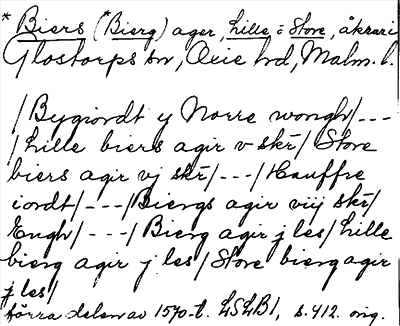 *Biers (*Bierg) ager, Lille- o Store, åkrar i
Glostorps sn, Oxie hd, Malm. l.
/Bygiordt y Norre wongh/---
/Lille biers agir v skr/ Store
biers agir vj skr/---/Hauffre
iordt/---/Biergs agir viij skr/
Engh/---/Bierg agir j les/Lille
bierg agir j les/Store bierg agir
j les/
förra delen av 1570-t. LSLB1, s. 412. orig.